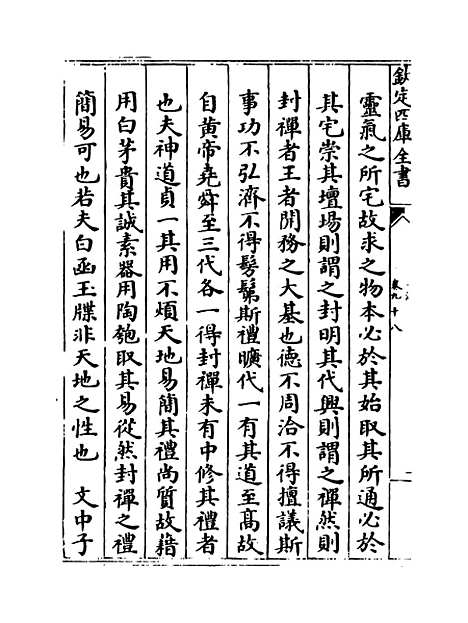 欽定四庫全書
卷九十八
二
靈氣之所宅故求之物本必於其始取其所通必於
其宅崇其壇場則謂之封明其代興則謂之禪然則
封禪者王者開務之大基也德不周洽不得擅議斯
事功不弘濟不得髣髴斯禮曠代一有其道至高故
自黄帝堯舜至三代各一得封禪未有中修其禮者
也夫神道貞一其用不煩天地易簡其禮尚質故藉
用白茅貴其誠素器用陶匏取其易從然封禪之禮
簡易可也若夫白函玉牒非天地之性也　文中子